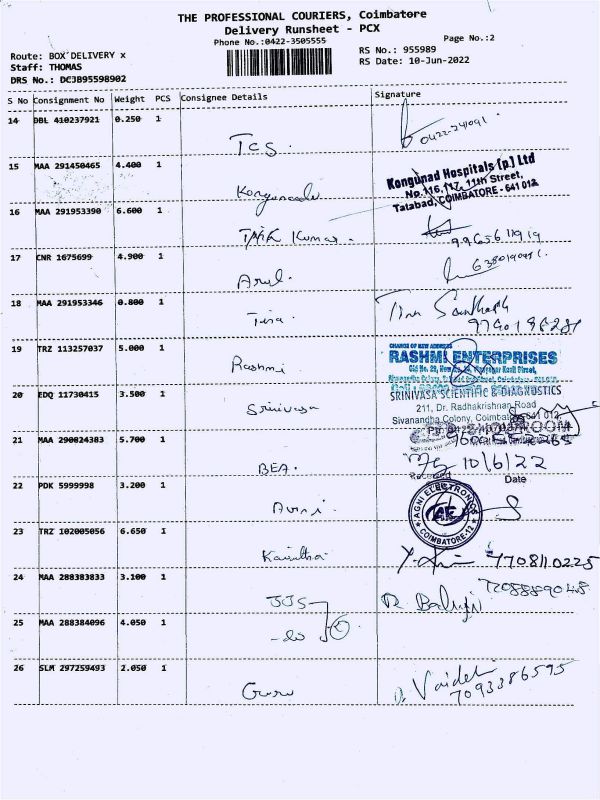 THE PROFESSIONAL COURIERS, Coimbatore
Delivery Runsheet - PCX
Phone No.:0422-3505555
Page No.:2
Route: BOX DELIVERY x
RS No.: 955989
Staff: THOMAS
RS Date: 10-Jun-2022
DRS No.: DCJB95598902
S No Consignment No Weight PCS Consignee Details Signature
14 DBL 410237921 0.250 1
TCS.
15 MAA 291450465 4.400 1
Kongunadu
Kongunad Hospitals (p) Ltd
No.116,117, 11th Street,
Tatabad, COIMBATORE - 641 012
16 MAA 291953390 6.600 1
Kumar.
9965611919
17 CNR 1675699 4.900 1
Arul.
18 MAA 291953346 0.800 1
Tina.
19 TRZ 113257037 5.000 1
Rashmi
CHANGE OF NEW ADDRESS
RASHMI ENTERPRISES
20 EDQ 11730415 3.500 1
Srinivasa
SRINIVASA SCIENTIFIC & DIAGNOSTICS
211, Dr. Radhakrishnan Road
Sivanandha Colony, Coimbatore 641 012
21 MAA 290824383 5.700 1
BEA.
SHOWROOM
10/6/22
Received
Date
22 PDK 5999998 3.200 1
Agni.
AGNI ELECTRONICS
AE
COIMBATORE-12
23 TRZ 102005056 6.650 1
Kavitha
7708110225
24 MAA 288383833 3.100 1
JJS
R. Balaji
25 MAA 288384096 4.050 1
-do
26 SLM 297259493 2.050 1
Guru
D. Vaidehi
7093386595